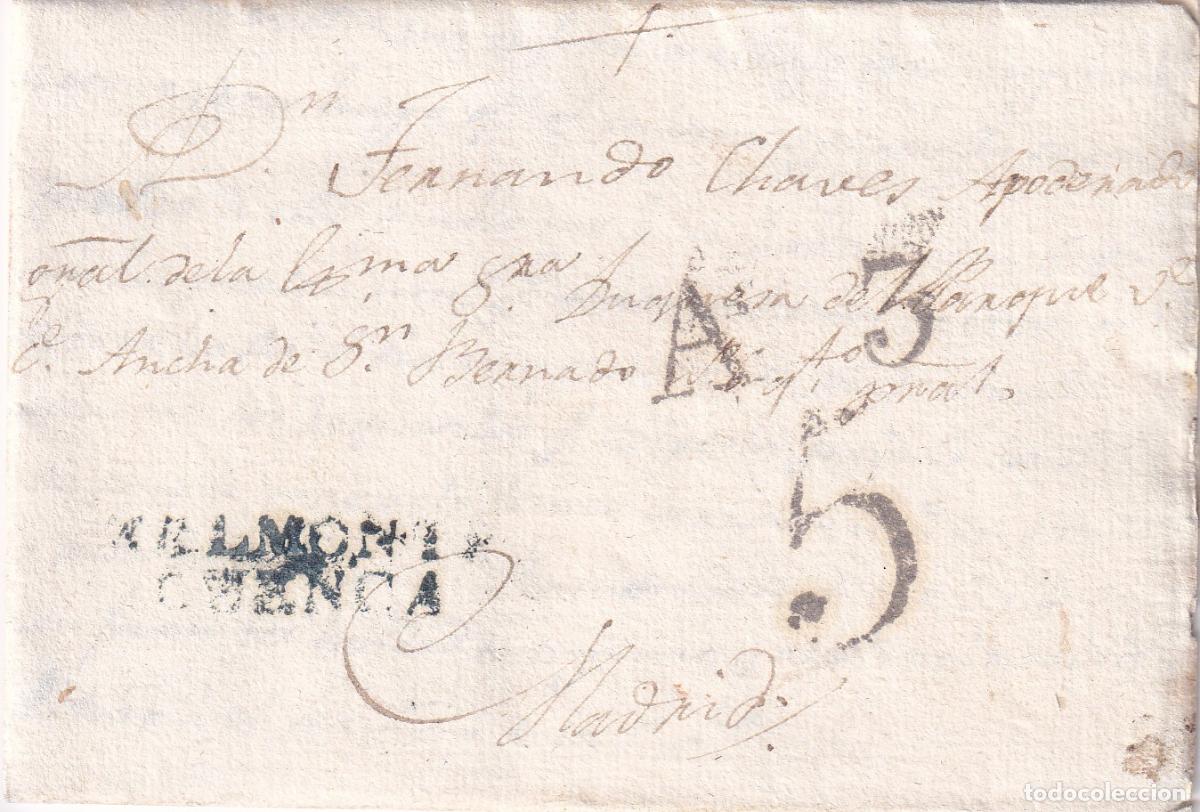 Dn. Fernando Chaves Apoderado
gral. de la Exma Sra. Duquesa de
Ce. Ancha de Sn. Bernardo qto. pral.
A 3
5
BELMONTE
CUENCA
Madrid.
todocoleccion